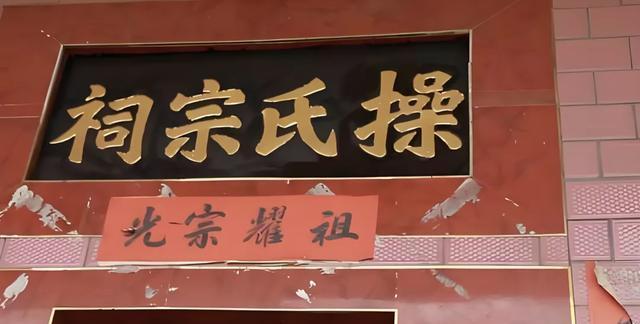 操氏宗祠
光宗耀祖